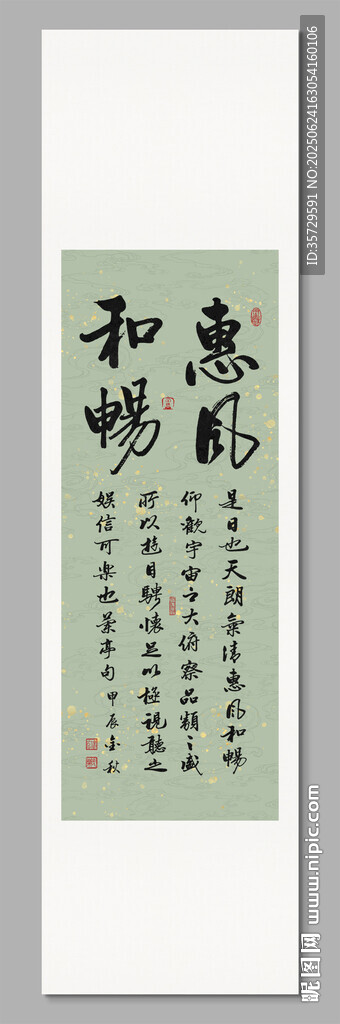 惠風
和暢
是日也天朗氣清惠風和暢
仰觀宇宙之大俯察品類之盛
所以遊目騁懷足以極視聽之
娛信可樂也蘭亭句甲辰金秋
ID:35729591 NO:20250624163054160106
昵图网 www.nipic.com